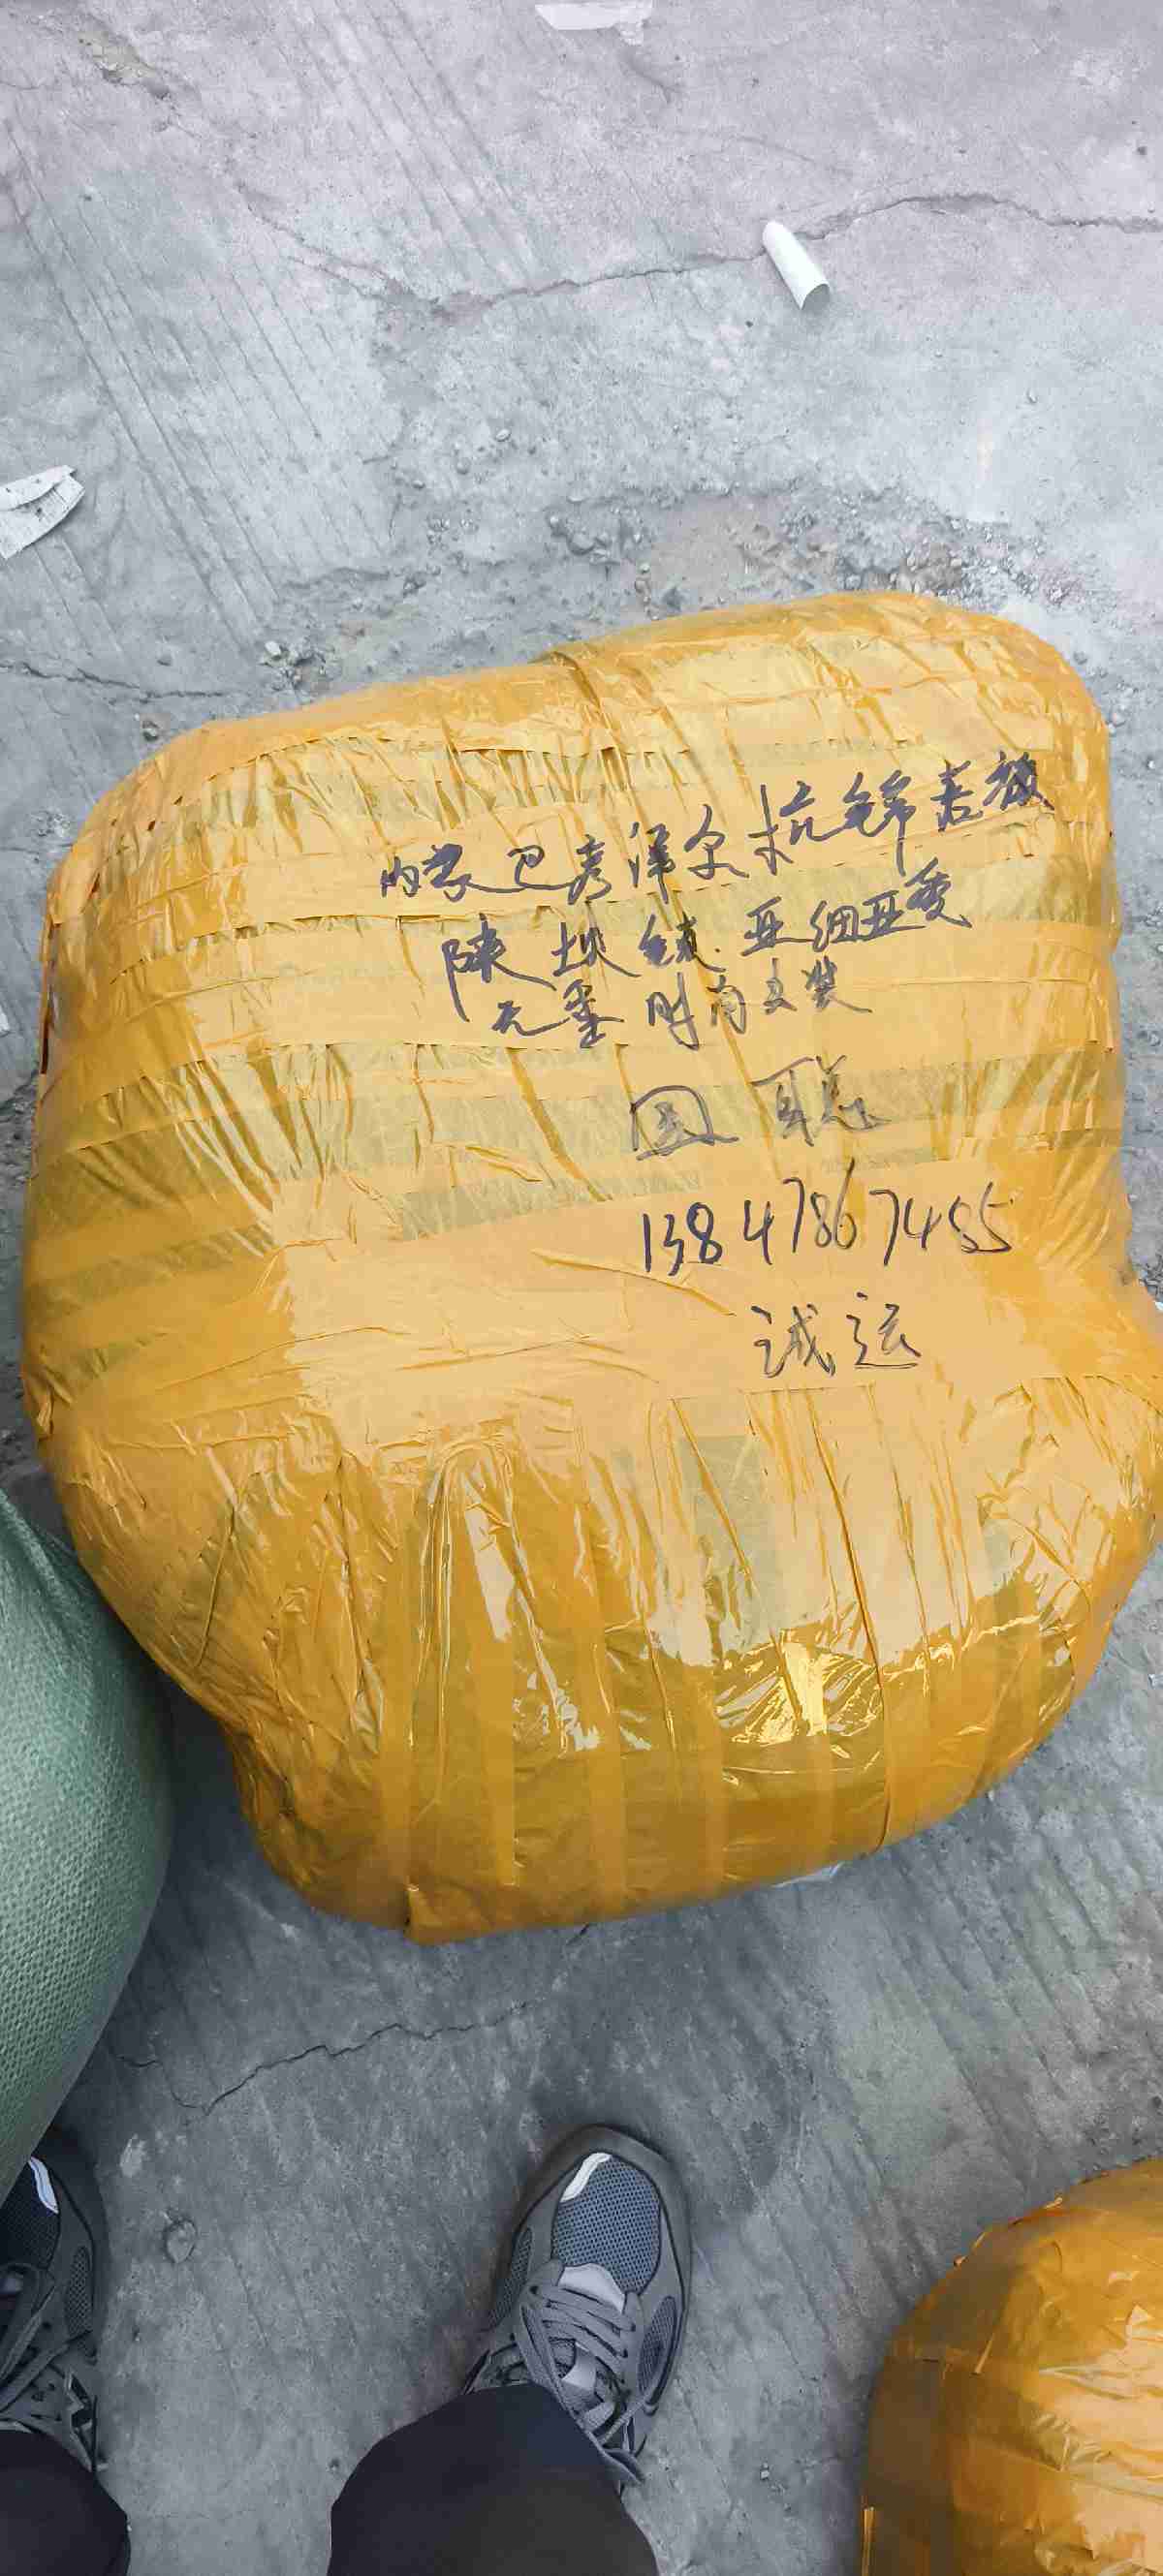 内蒙巴彦淖尔杭锦后旗
陕坝镇.亚细亚委
元墨时尚女装
聪
13847867485
诚运